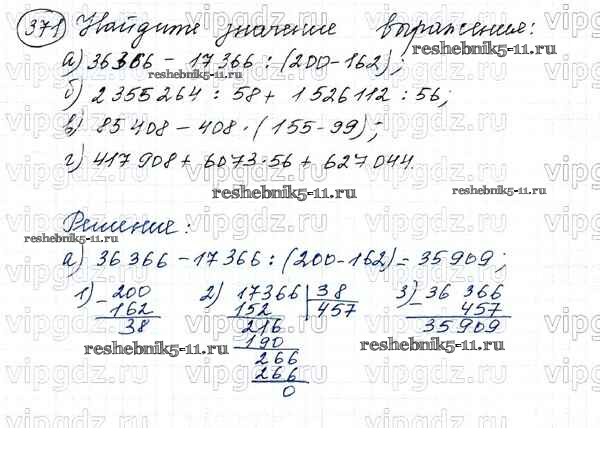 371 Найдите значение выражения:
а) 36366 - 17366 : (200-162);
б) 2355264 : 58 + 1526112 : 56;
в) 85408 - 408 · (155-99);
г) 417908 + 6073·56 + 627044.
Решение:
а) 36366 - 17366 : (200-162) = 35909;
1) 200 2) 17366 38 3) 36 366
- 162 152 457 - 457
38 216 35909
190
266
266
0
reshebnik5-11.ru
reshebnik5-11.ru
reshebnik5-11.ru
reshebnik5-11.ru
reshebnik5-11.ru
reshebnik5-11.ru
vipgdz.ru